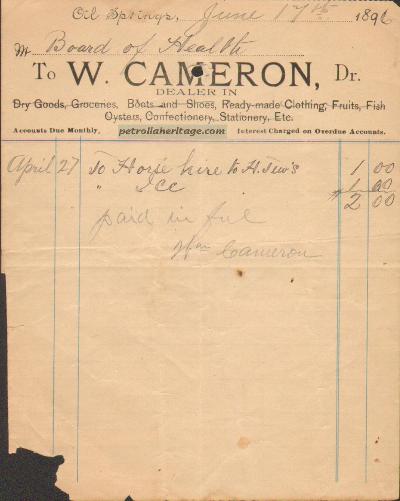 Oil Springs, June 17th 1896
Mr Board of Health
To W. CAMERON, Dr.
DEALER IN
Dry Goods, Groceries, Boots and Shoes, Ready-made Clothing, Fruits, Fish
Oysters, Confectionery, Stationery, Etc.
Accounts Due Monthly. petroliaheritage.com Interest Charged on Overdue Accounts.
April 27 To Horse hire to H. 1 00
" Ice 1 00
$2 00
paid in ful
Wm Cameron